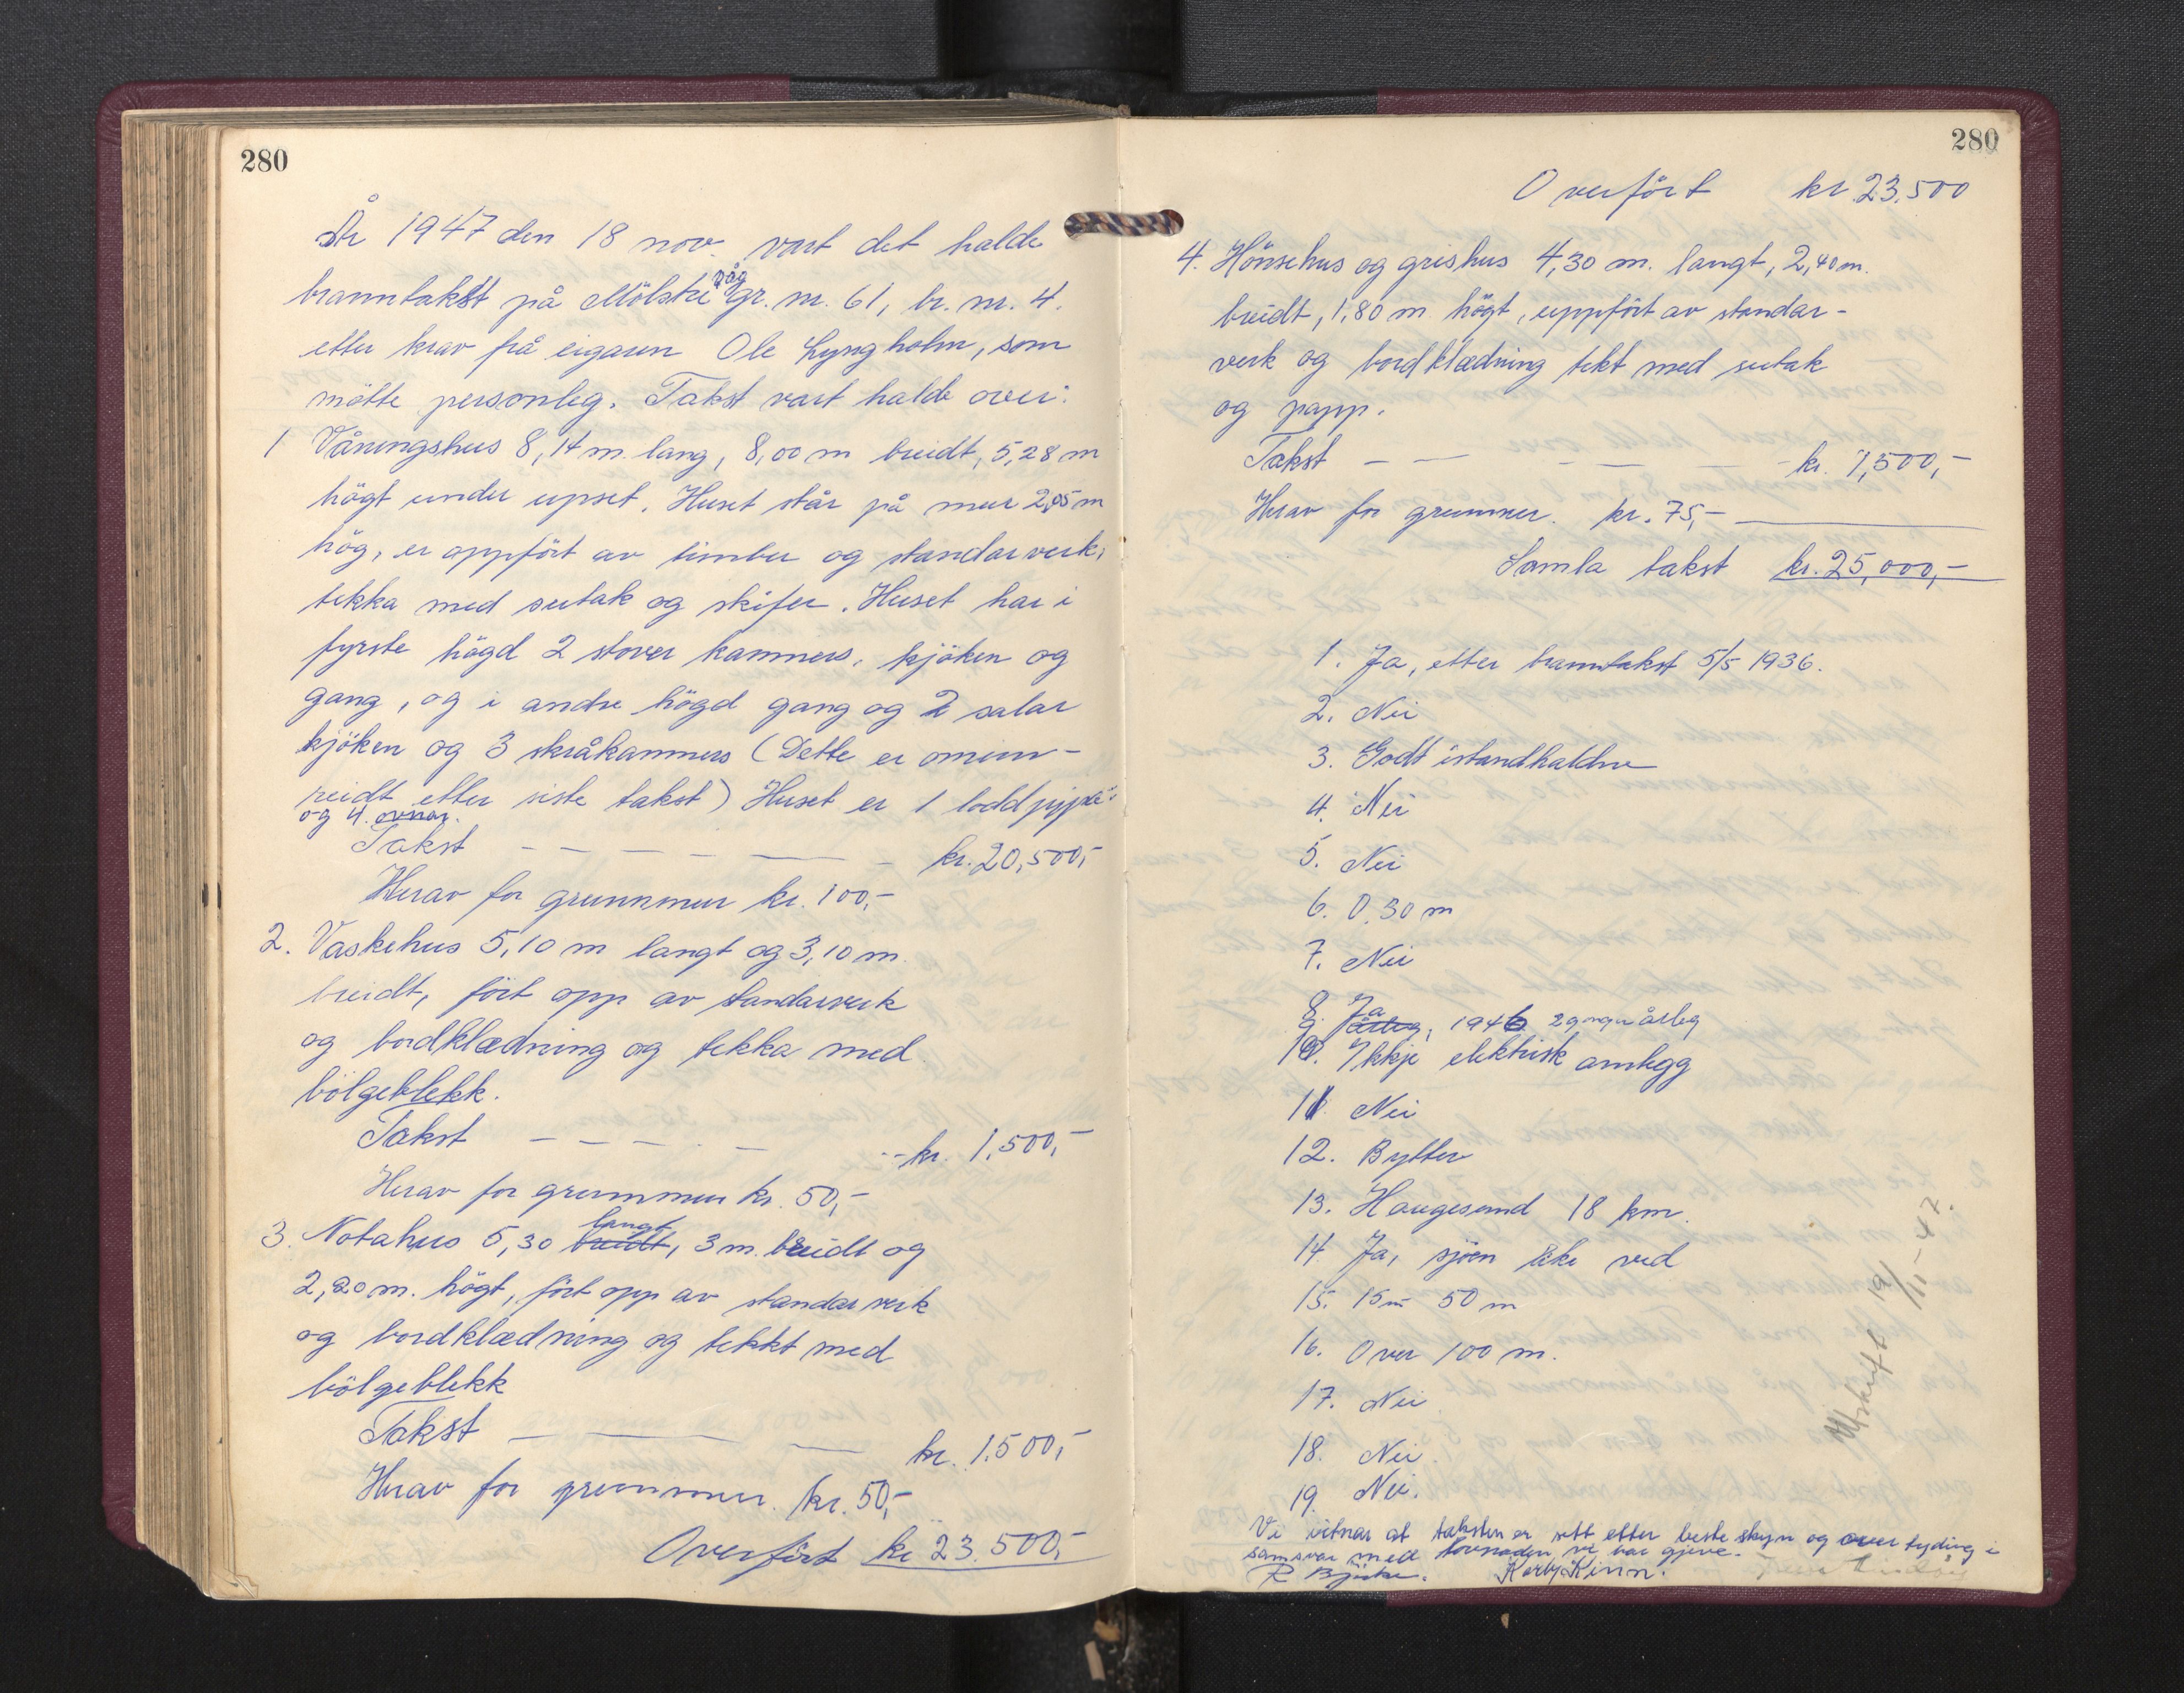 280
År 1947 den 18 nov. vart det halde
branntakst på Mölstrevåg gr. nr. 61, br. nr. 4.
etter krav frå eigaren Ole Lyngholm, som
mötte personleg. Takst vart halde over:
1 Våningshus 8,14 m. lang, 8,00 m breidt, 5,28 m
högt under upset. Huset står på mur 2,05 m
hög, er oppfört av timber og standarverk,
tekka med sutak og skifer. Huset har i
fyrste högd 2 stover kammers, kjöken og
gang, og i andre högd gang og 2 salar
kjöken og 3 skråkammers (Dette er ominn-
reidt etter siste takst) Huset er 1 loddpipe
og 4. ovnar.
Takst — — — — — — kr. 20,500,-
Herav for grunnmur kr. 100,-
2. Vaskehus 5,10 m langt og 3,10 m.
breidt, fört opp av standarverk
og bordklædning og tekka med
bölgeblekk.
Takst — — — — — kr. 1.500,-
Herav for grunnmur kr. 50,-
3. Notahus 5,30 breidt langt, 3 m. breidt og
2,20 m. högt, fört opp av standarverk
og bordklædning og tekkt med
bölgeblekk
Takst — — — kr. 1.500,-
Herav for grunnmur. kr. 50,-
Overfört kr 23.500,-
280
Overfört kr. 23.500
4. Hönsehus og grishus 4,30 m. langt, 2,40 m.
breidt, 1,80 m högt, uppfört av standar-
verk og bordklædning tekt med sutak
og papp.
Takst — — — — — kr. 1,500,-
Herav for grunnmur. kr. 75,-
Samla takst kr. 25,000,-
1. Ja, etter branntakst 5/5 1936.
2. Nei
3. Godt istandhaldne
4. Nei
5. Nei
6. 0.30 m
7. Nei
8. Ja
9 årleg, 1946 2 gonger årleg
10. Ikkje elektrisk anlegg
11 Nei
12. Bytter
13. Haugesund 18 km.
14. Ja, sjöen like ved
15. 15 m 50 m
16. Over 100 m.
17. Nei
18. Nei
19. Nei.
Vi vitnar at taksten er sett etter beste skyn og overtyding i
samsvar med lovnaden vi har gjeve.
R Bjerke. Karly Kinn.
Utskrift 19/11-47.